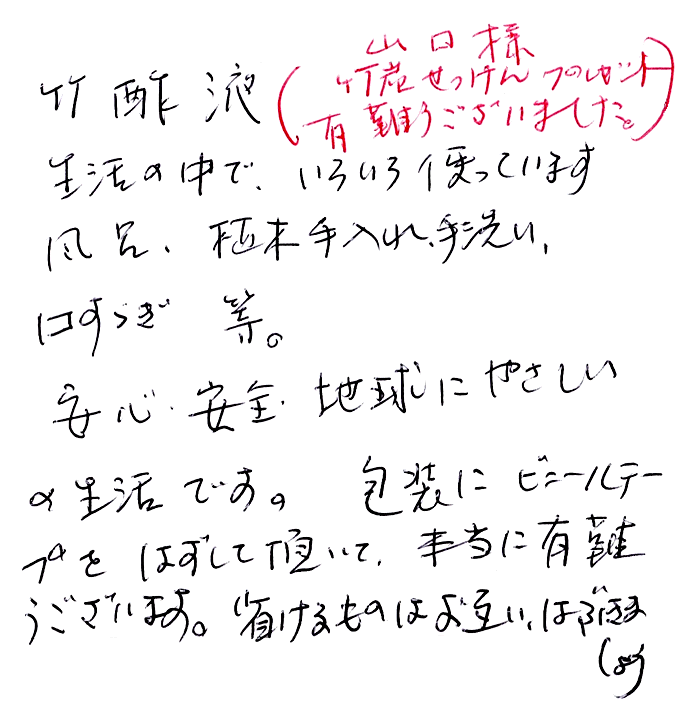 竹酢液
(山口様
竹炭せっけんプレゼント
有難うございました。)
生活の中で、いろいろ使っています
風呂、植木手入れ、手洗い、
口すゝぎ 等。
安心・安全・地球にやさしい
の生活です。 包装にビニールテー
プを はずして頂いて、本当に有難
うございます。省けるものはお互い、はぶきま
しょう